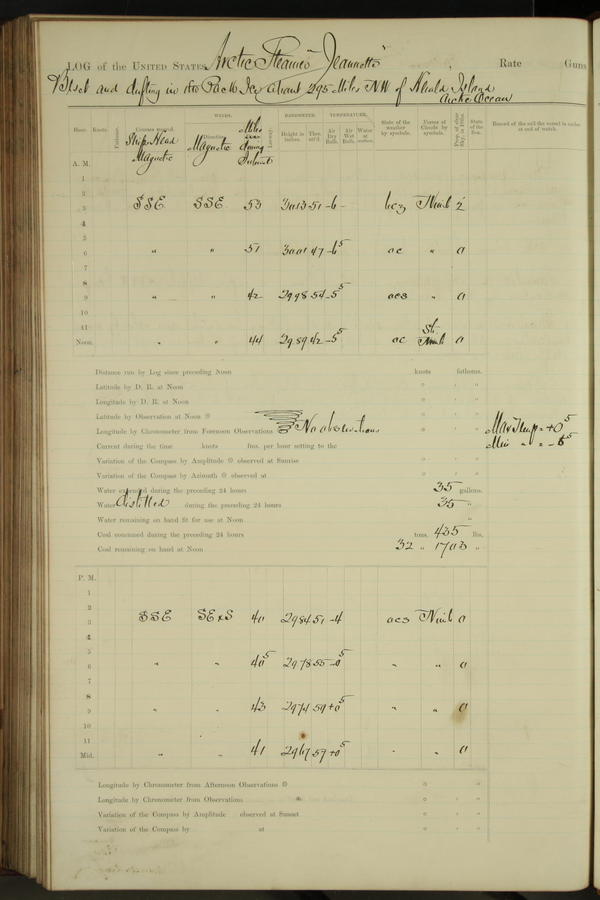 LOG of the UNITED STATES Arctic Steamer "Jeannette", Rate Guns
Beset and drifting in the Pack Ice about 295 Miles NW of Herald Island
Arctic Ocean
WINDS. BAROMETER. TEMPERATURE.
Hour. Knots. Fathoms. Courses steered. Direction Leeway. Height in inches. Ther. att'd. Air Dry Bulb. Air Wet Bulb. Water at surface. State of the weather by symbols. Forms of Clouds by symbols. Prop. of clear Sky, in 10ths. State of the Sea. Record of the sail the vessel is under at end of watch.
Ship's Head Magnetic Magnetic Miles per during
A. M.
1
2
3 SSE SSE 53 3013 51 -6 - bcz Nimb 2
4
5
6 " " 51 3001 47 -6 5 oc " 0
7
8
9 " " 42 2998 54 -5 5 ocs " 0
10
11
Noon. " " 44 2989 42 -5 5 oc St. Nimb 0
Distance run by Log since preceding Noon knots fathoms.
Latitude by D. R. at Noon ° ' "
Longitude by D. R. at Noon ° ' "
Latitude by Observation at Noon ° ' "
Longitude by Chronometer from Forenoon Observations No observations ° ' " Max Temp = +0 5
Current during the time knots fms. per hour setting to the Min " = -6 5
Variation of the Compass by Amplitude observed at Sunrise ° ' "
Variation of the Compass by Azimuth observed at ° ' "
Water expended during the preceding 24 hours 35 gallons.
Water distilled during the preceding 24 hours 35 "
Water remaining on hand fit for use at Noon "
Coal consumed during the preceding 24 hours tons, 435 lbs.
Coal remaining on hand at Noon 32 " 1703 "
P. M.
1
2
3 SSE SExS 40 2984 51 -4 ocs Nimb 0
4
5
6 " " 40 5 2978 55 -0 5 " " 0
7
8
9 " " 43 2974 59 +0 5 " " 0
10
11
Mid. " " 41 2967 59 +0 5 " " 0
Longitude by Chronometer from Afternoon Observations ° "
Longitude by Chronometer from Observations ° ' "
Variation of the Compass by Amplitude observed at Sunset ° ' "
Variation of the Compass by at ° ' "